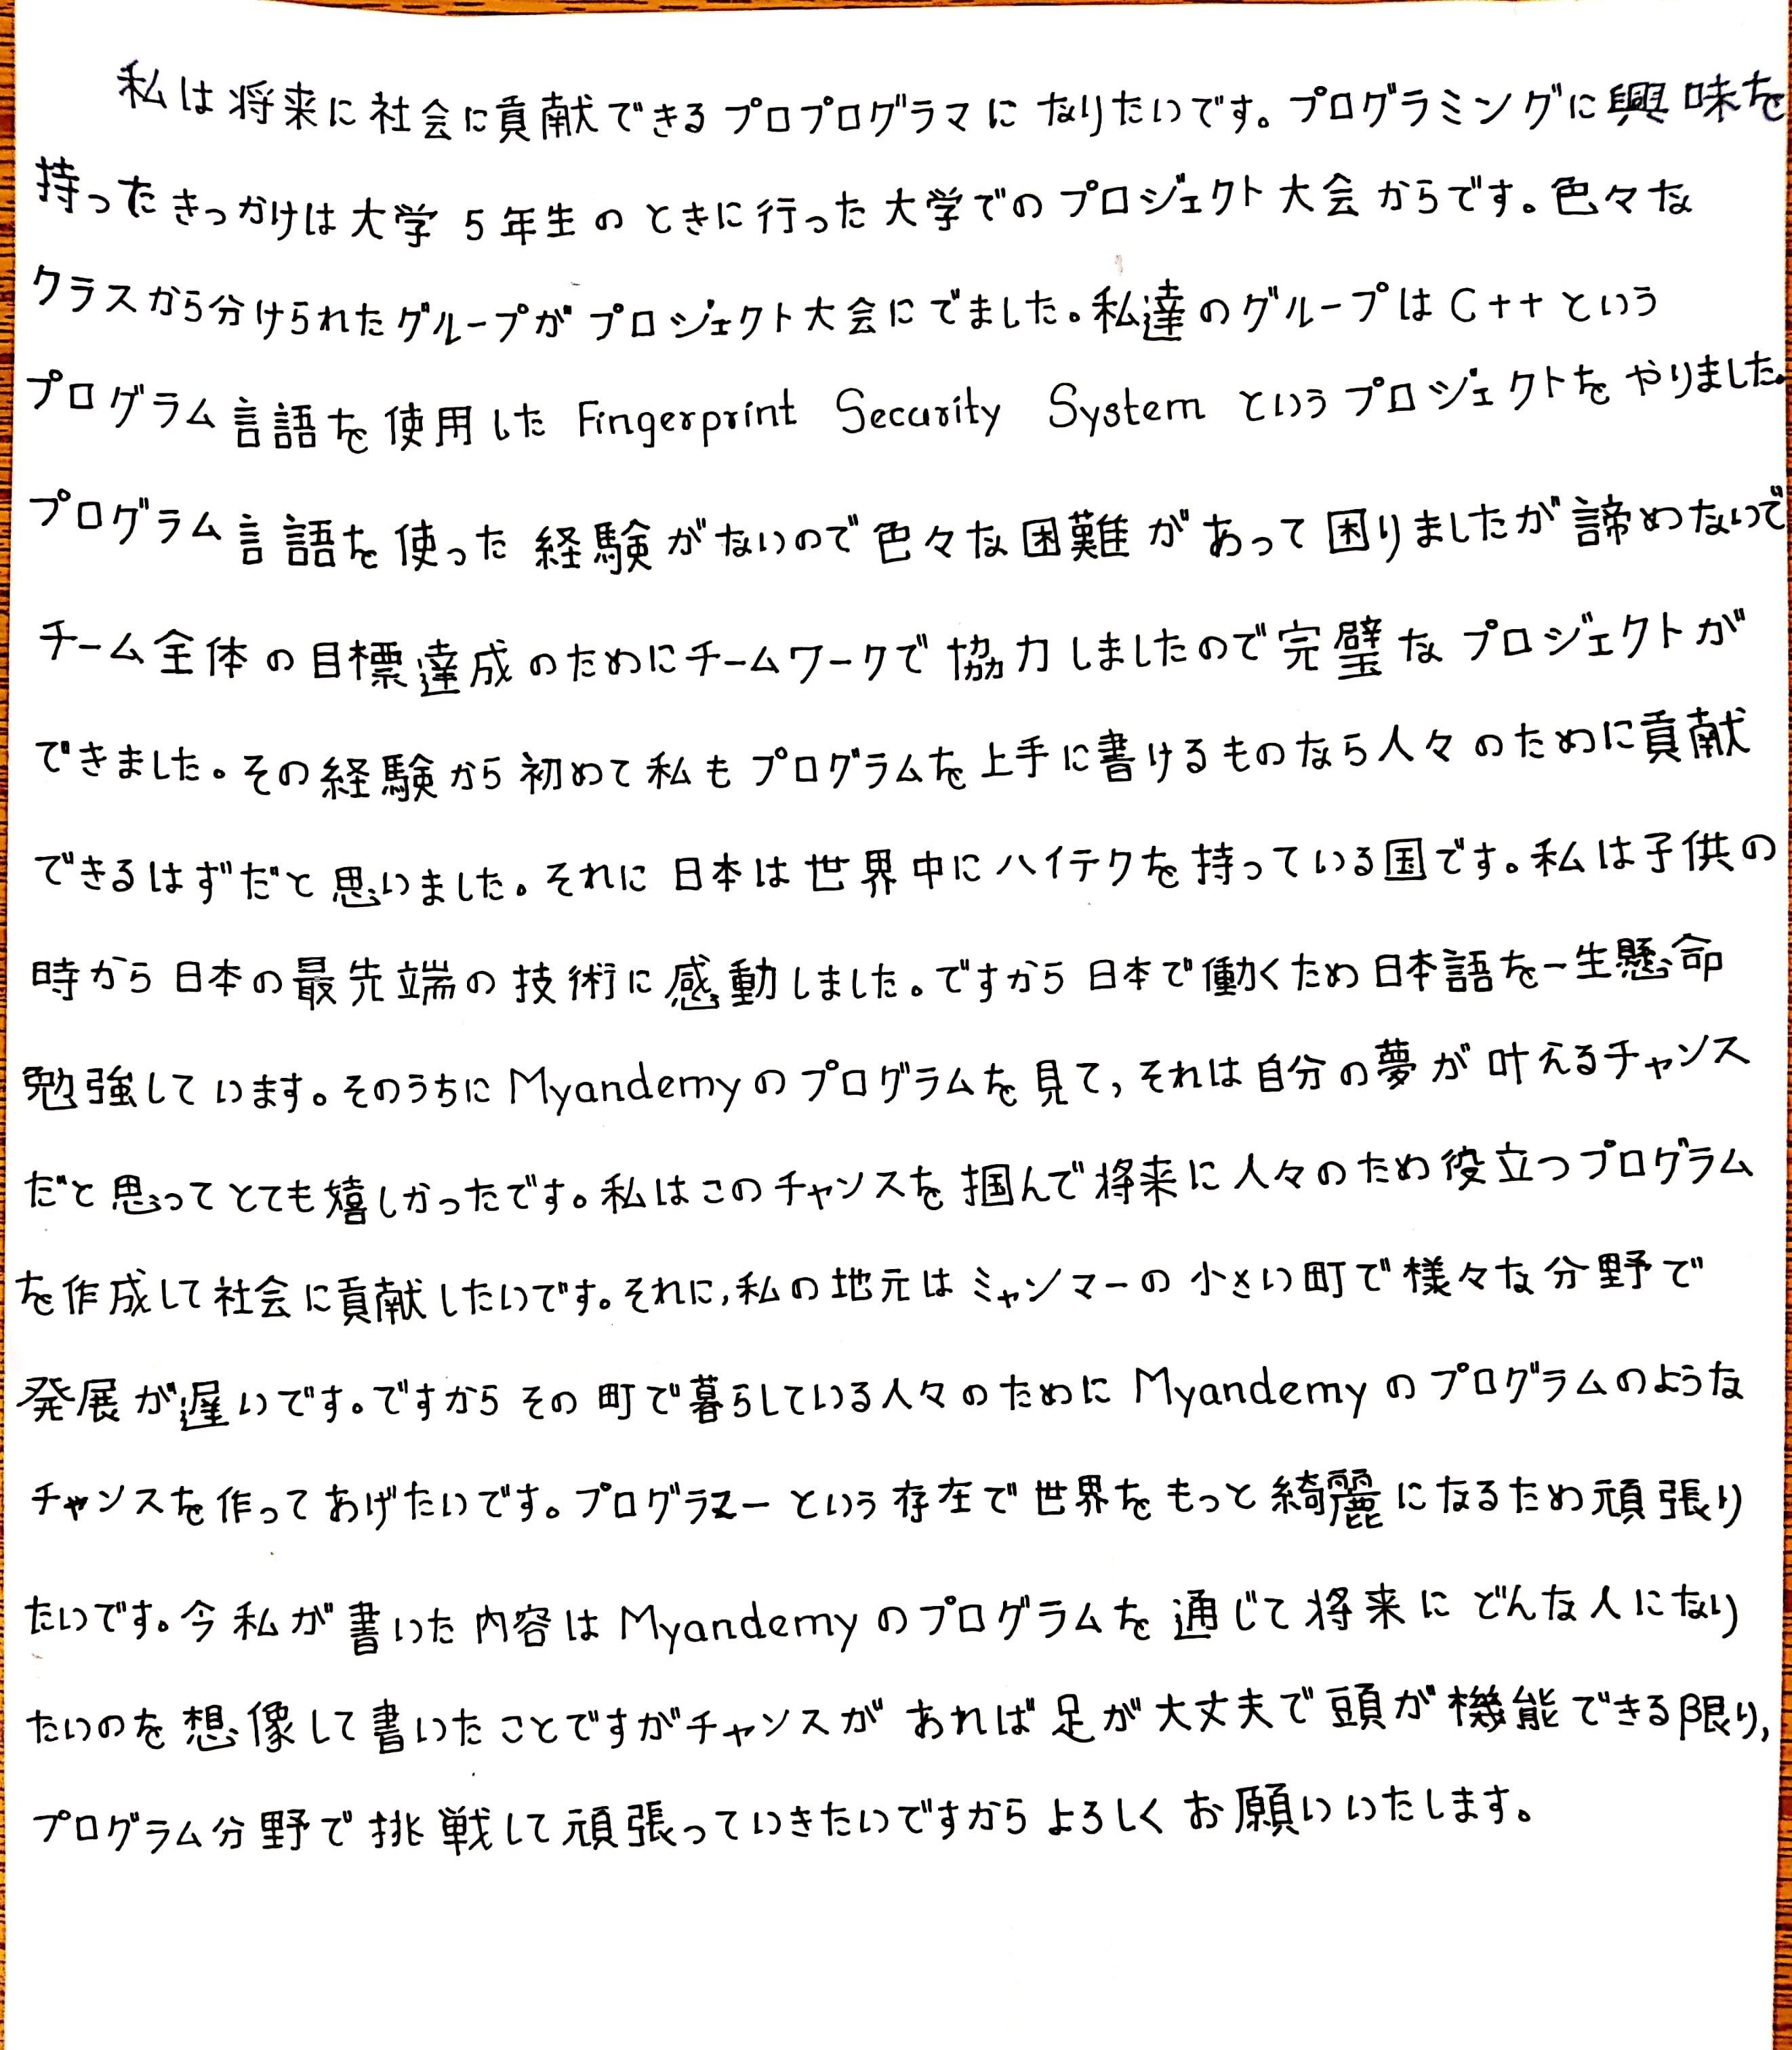 私は将来に社会に貢献できるプロプログラマになりたいです。プログラミングに興味を
持ったきっかけは大学5年生のときに行った大学でのプロジェクト大会からです。色々な
クラスから分けられたグループがプロジェクト大会にでました。私達のグループはC++という
プログラム言語を使用したFingerprint Security Systemというプロジェクトをやりました。
プログラム言語を使った経験がないので色々な困難があって困りましたが諦めないで
チーム全体の目標達成のためにチームワークで協力しましたので完璧なプロジェクトが
できました。その経験から初めて私もプログラムを上手に書けるものなら人々のために貢献
できるはずだと思いました。それに日本は世界中にハイテクを持っている国です。私は子供の
時から日本の最先端の技術に感動しました。ですから日本で働くため日本語を一生懸命
勉強しています。そのうちにMyandemyのプログラムを見て,それは自分の夢が叶えるチャンス
だと思ってとても嬉しかったです。私はこのチャンスを掴んで将来に人々のため役立つプログラム
を作成して社会に貢献したいです。それに,私の地元はミャンマーの小さい町で様々な分野で
発展が遅いです。ですからその町で暮らしている人々のためにMyandemyのプログラムのような
チャンスを作ってあげたいです。プログラマーという存在で世界をもっと綺麗になるため頑張り
たいです。今私が書いた内容はMyandemyのプログラムを通じて将来にどんな人になり
たいのを想像して書いたことですがチャンスがあれば足が大丈夫で頭が機能できる限り,
プログラム分野で挑戦して頑張っていきたいですからよろしくお願いいたします。